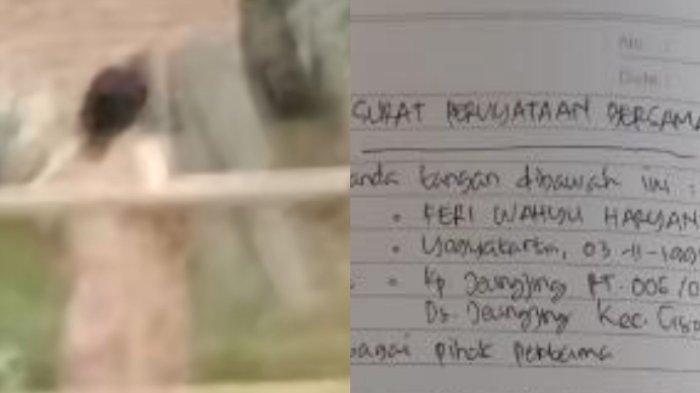 No :
Date :
SURAT PERNYATAAN BERSAMA
anda tangan dibawah ini :
• FERI WAHYU HARYAN
• Yogyakarta, 03-11-199
• Kp Jeungjing RT.006/0
Ds. Jeungjing Kec. Ciso
bagai pihak pertama